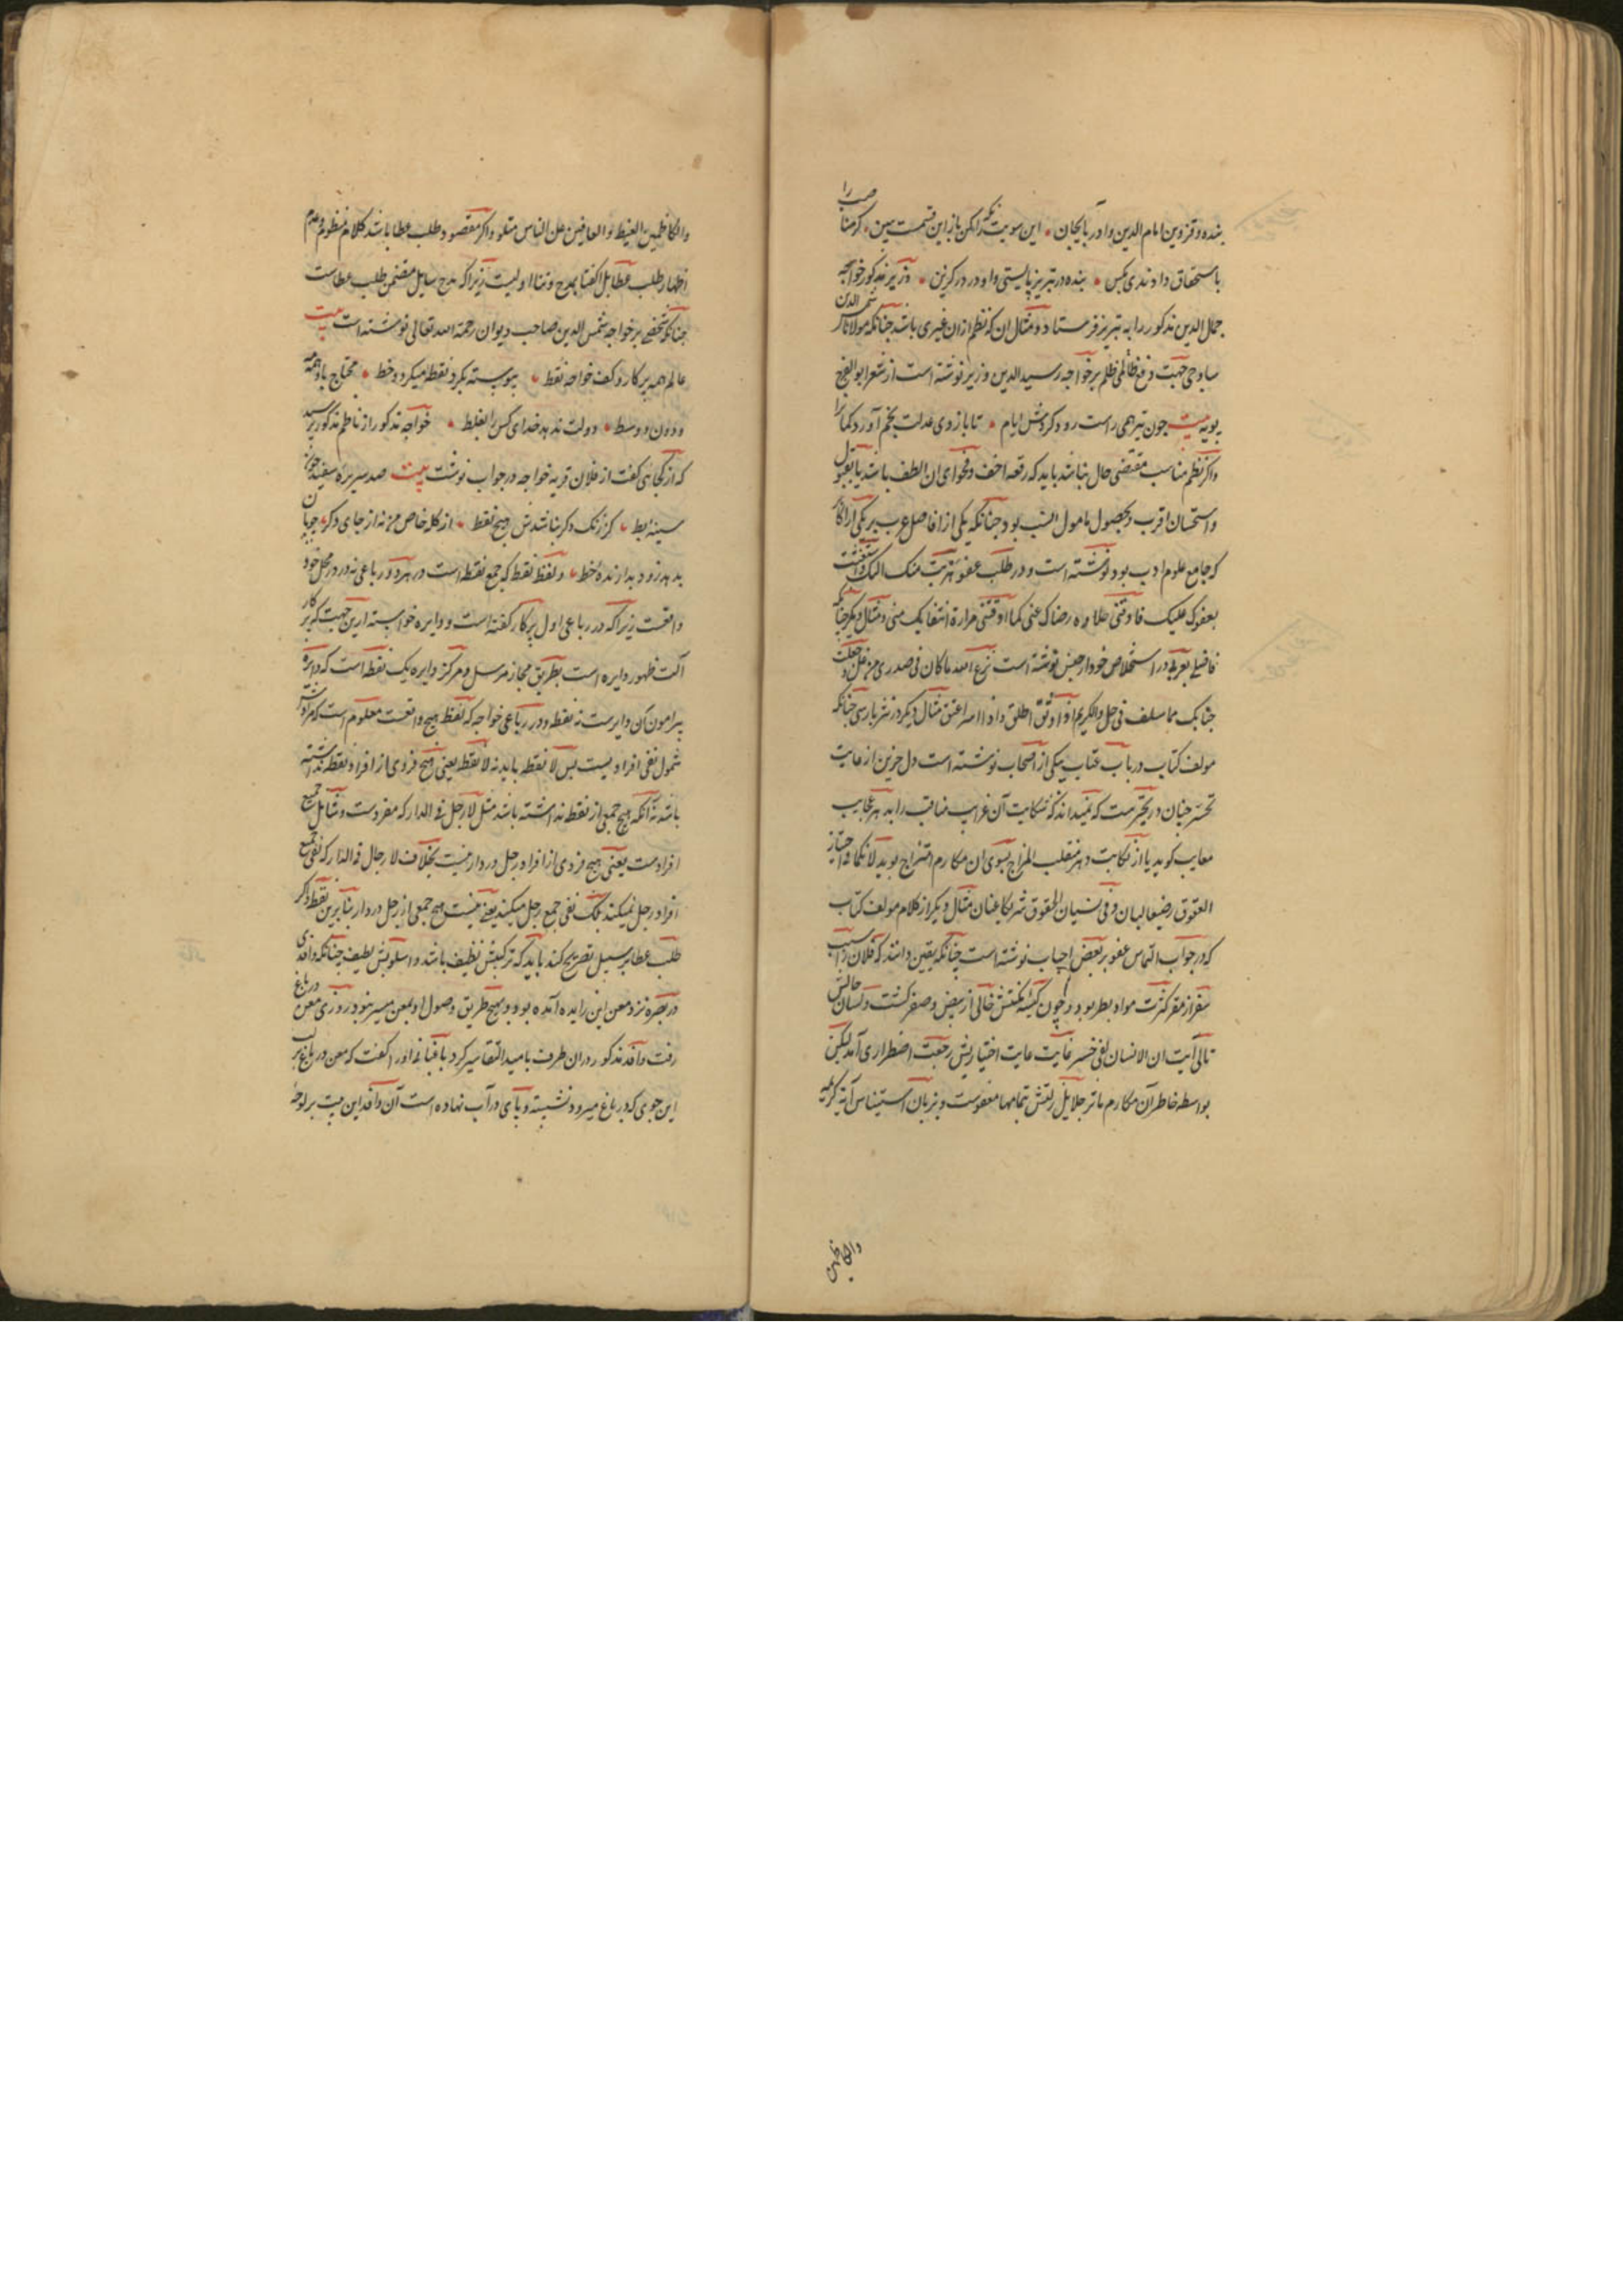 بنده و قزوین امام الدین و آذربایجان این سویت نکه لیکن باز این قسمت ببین کرمنا صب را
باستحقاق داوندی بکس بنده در تبریز بایستی و او در کرزین وزیر مذکور خواجه
جمال الدین مذکور را به تبریز فرستاد و مثال آن که نظم از آن غیری باشد جنانکه مولانا شمس الدین
ساوجی جهت دفع ظالمی ظلم بر خواجه رسید الدین وزیر نوشته است از شعر ابو الفرج
بویه بیت جون تیر اهی راست رود کردش ایام تا بازوی عدلت بخم آورد کمان را
و اکر نظم مناسب مقتضی حال نباشد باید که رقعه اخف و فحوای آن الطف باشد یا بقبول
و استحسان اقرب و بحصول مامول انسب بود جنانکه یکی از افاضل عرب بر یکی از اکابر
که جامع علوم ادب بود نوشته است و در طلب عفو هربت منک الیک و استغثت
بعفوک علیک فاذقنی حلاوه رضاک عنی کما اذقتنی مرارة انتقامک منی و مثال دیکر جنانکه
فاضلی بعربی در استخلاص خود از حبس نوشته است نزع الله ما کان فی صدری من غل و جعلت
جنابک مما سلف فی حل و الکریم اذا اوثق اطلق و اذا اسر اعتق مثال دیکر در نثر بارسی جنانکه
مولف کتاب در باب عتاب بیکی از اصحاب نوشته است دل حزین از غایت
تحسر جنان در تحیرست که نمیداند که شکایت آن غرایب مناقب را بدهر عجایب
معایب کوید یا از نکایت دهر منقلب المزاج بسوی آن مکارم امتزاج بوید لانکما فی اجتیاز
العقوق رضیعا لبان و فی نسیان الحقوق شریکا عنان مثال دیکر از کلام مولف کتاب
که در جواب التماس عفو بر بعض احباب نوشته است جنانکه یقین دانند که فلان را سبب
سفر از مقر کثرت مواد بطر بود و جون کیسه مکنتش خالی از بیض و صفر کشت و لسان حالش
تالی آیت ان الانسان لفی خسر غایت عایت اختیاریش رجعت اضطراری آمد لیکن
بواسطه خاطر آن مکارم مآثر جلایل زلتش تمامها معفوست و بزبان استیناس آیة کریمه
والکاظمین
والکاظمین الغیظ و العافین عن الناس متلو و اکر مقصود طلب عطا باشد کلام منظوم و عدم
اظهار طلب عطا بل اکتفا بمدح و ثنا اولیست زیرا که مدح سایل مقتضی طلب عطاست
جنانکه شخصی بر خواجه شمس الدین صاحب دیوان رحمة الله تعالی نوشته است بیت
عالم همه برکار و کف خواجه نقط بیوسته بکرد نقطه میکردد خط محتاج باو همه
و دون و وسط دولت ندهد خدای کس را بغلط خواجه مذکور از ناظم مذکور برسید
که از کجایی کفت از فلان قریه خواجه در جواب نوشت بیت صد سر بره سفید جون
سینه بط کز رنک دکر نباشدش هیج نقط از کله خاص من نه از جای دکر جوبان
بدهد زود بدارنده خط و لفظ نقط که جمع نقطه است در هر دو رباعی نه در در محل خود
واقعست زیرا که در رباعی اول برکار کفته است و دایره خواسته ازین جهت که برکار
آلت ظهور دایره است بطریق مجاز مرسل و مرکز دایره یک نقطه است که دایره
بیرامون آن دایرست نه نقط و در رباعی خواجه که لفظ هیج واقعست معلوم است که مرادش
شمول نفی افرادیست بس لا نقطه باید نه لا نقط یعنی هیج فردی از افراد نقطه نداشته
باشد نه آنکه هیج جمعی از نقط نداشته باشد مثل لا رجل فی الدار که مفردست و شامل جمیع
افرادست یعنی هیج فردی از افراد رجل در دار نیست بخلاف لا رجال فی الدار که نفی جمیع
افراد رجل نمیکند بلک نفی جمع رجل میکند یعنی نیست هیج جمعی از رجل در دار بنا برین نقط ذکر
طلب عطا بر سبیل تصریح کند باید که ترکیبش نظیف باشد و اسلوبش لطیف جنانکه وافدی
در بصره نزد معن ابن زایده آمده بود و بهیج طریق وصول او بمعن میسر نبود روزی معن در باغ
رفت وافد مذکور در آن طرف بامید التقا سیر کرد باغبانی او را کفت که معن در باغ بر لب
این جوی که در باغ میرود نشسته و بای در آب نهاده است آن وافد این بیت بر لوحه